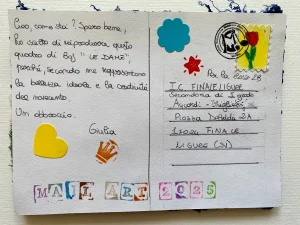 Ciao, come stai? Spero bene,
Ho scelto di riprodurre questo
quadro di Boj "LE DAME",
perché, secondo me rappresentano
la bellezza ideale e la creatività
del novecento
Un abbraccio.
Giulia
Per la classe 2B
I.C. FINALE LIGURE
Secondaria di I grado
Piazza 2A
17024 FINALE
LIGURE (SV)
MAIL ART 2025